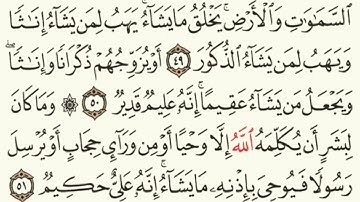 ٱلسَّمَٰوَٰتِ وَٱلۡأَرۡضِۚ يَخۡلُقُ مَا يَشَآءُۚ يَهَبُ لِمَن يَشَآءُ إِنَٰثٗا
وَيَهَبُ لِمَن يَشَآءُ ٱلذُّكُورَ ٤٩ أَوۡ يُزَوِّجُهُمۡ ذُكۡرَانٗا وَإِنَٰثٗاۖ
وَيَجۡعَلُ مَن يَشَآءُ عَقِيمًاۚ إِنَّهُۥ عَلِيمٞ قَدِيرٞ ٥٠ ۞ وَمَا كَانَ
لِبَشَرٍ أَن يُكَلِّمَهُ ٱللَّهُ إِلَّا وَحۡيًا أَوۡ مِن وَرَآيِٕ حِجَابٍ أَوۡ يُرۡسِلَ
رَسُولٗا فَيُوحِيَ بِإِذۡنِهِۦ مَا يَشَآءُۚ إِنَّهُۥ عَلِيٌّ حَكِيمٞ ٥١